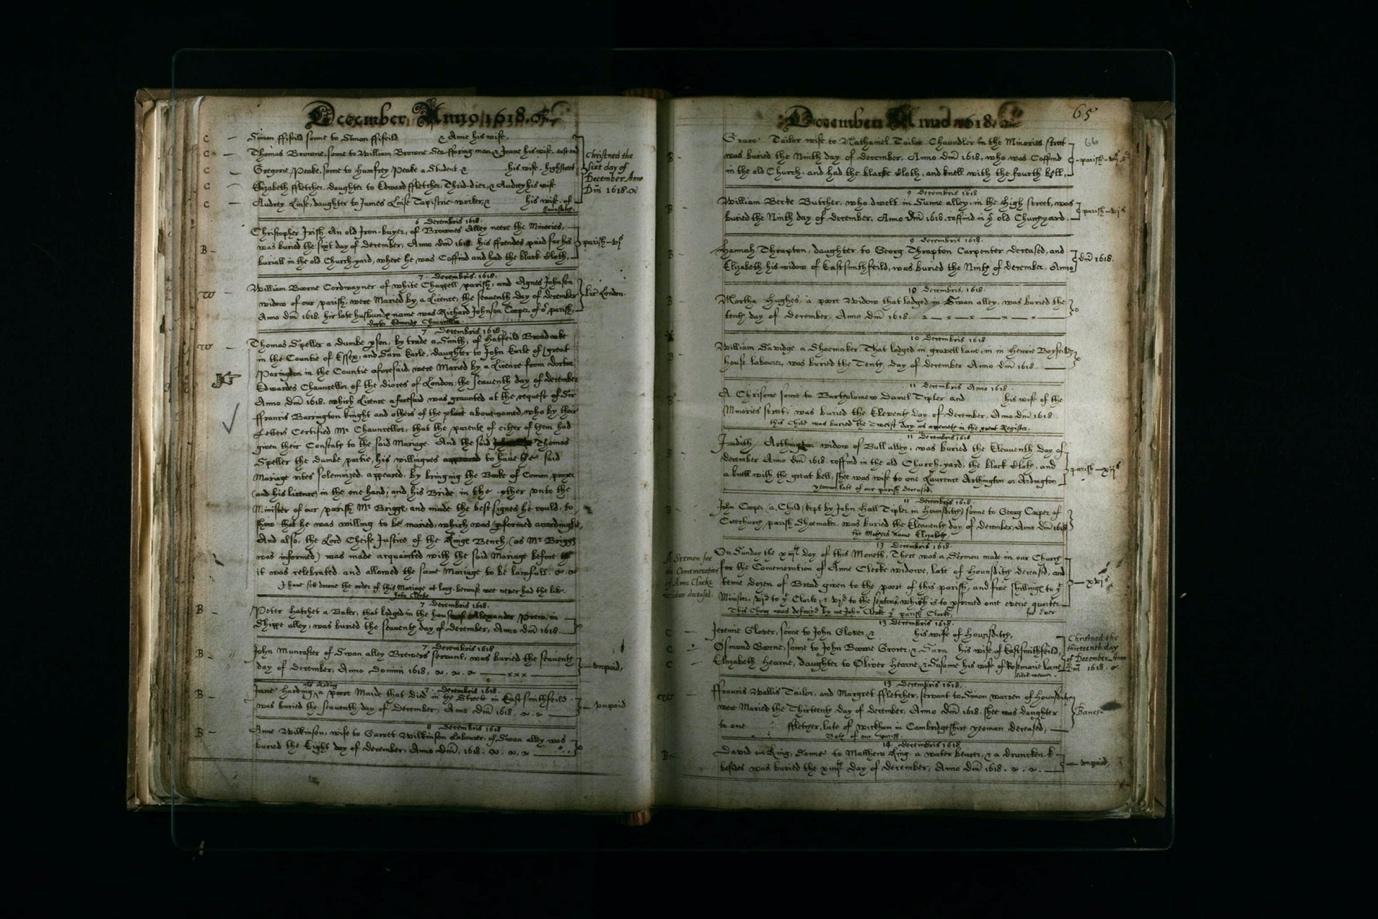 December, Anno, 1618.
C Simon ffifeild sonne to Simon ffifeild & Anne his wife.
C Thomas Browne, sonne to William Browne & Jane his wife
C Gregorie Peake, sonne to Humfrey Peake a Student & his wife. highstreet
C Elizabeth ffletcher, daughter to Edward ffletcher & Audrey his wife
C Audrey Linse, daughter to James Linse Tapistrie-worker, & his wife. of
Christned the
sixt day of
December Ano
Dni 1618.
6 Decembris 1618.
Christopher Irish An old Iron-buyer, of Brownes Alley neere the Minories,
B was buried the sixt day of December, Anno dni 1618. his ffrendes paid for his
buriall in the old Church-yard, where he was Coffind and had the black cloth,
7 Decembris 1618.
William Boorne Cordwayner of white Chappell parish, and Agnes Johnson
W widow of our parish, were Maried by a Licence, the seaventh day of december
Anno dni 1618. her late husband name was Richard Johnson Cooper, of oʳ parish,
Lic: London.
7 Decembris 1618.
W Thomas Speller a dumbe pson, by trade a Smith, of Hatfeild Broadoake
in the Countie of Essex, and Sara Earle, daughter to John Earle of great
Paringdon in the Countie aforesaid, were Maried by a Licence from doctor
Edwardes Chauncellor of the dioces of London, the seaventh day of december
Anno dni 1618. which Licence aforesaid was graunted at the request of Sir
ffrancis Barrington knight and others of the place abovenamed, who by their
Letters Certified Mr Chauncellor, that the parents of either of them had
given their Consents to the said Mariage. And the said Thomas
Speller the dumbe partie, his willingnes to have the said
Mariage rites solemnized, appeared, by bringing the Booke of Comon prayer
and his licence in the one hand, and his Bride in the other unto the
Minister of our parish Mr Briggs, and made the best signes he could, to
shew that he was willing to be maried, which was pformed accordinglie,
And also, the Lord Cheife Justice of the Kings Bench, (as Mr Briggs
was informed) was made acquainted with the said Mariage before
it was celebrated, and allowed the same Mariage to be lawfull.
I have sett downe the order of this Mariage at large, because we never had the like
7 Decembris 1618.
B Peter Hatchet a Baker, that lodged in the house of Alexander in
Shipp alley, was buried the seaventh day of december, Anno dni 1618.
7 Decembris 1618.
B John Muncaster of Swan alley Brewers servant, was buried the seaventh
day of december, Anno Domini 1618.
unpaid,
7 Decembris 1618.
B Jane Harding a poore Maide that died in the streete in Eastsmithfeild
was buried the seaventh day of December, Anno dni 1618.
unpaid
8 Decembris 1618
B Ane Wilkinson, wife to Garret Wilkinson Labourer, of Swan alley was
buried the Eight day of december, Anno dni 1618.
December Anno 1618.
65
66
B Grace Tailor wife to Nathaniel Tailor Chaundler in the Minories street
was buried the Ninth day of december, Anno dni 1618, who was Coffind
in the old Church-yard had the blacke cloth, and knell with the fourth bell,
9 Decembris 1618
B William Beede Butcher, who dwelt in Swane alley, in the high street, was
buried the Ninth day of december, Anno dni 1618, coffind in yᵉ old Churchyard.
9 Decembris 1618.
B Hannah Thrapton, daughter to Georg Thrapton Carpenter deceased, and
Elizabeth his widow of Eastsmithfeild, was buried the Ninth of december, Anno
dni 1618.
10 Decembris 1618.
B Martha Hughes, a poore Widow that lodged in Swan alley, was buried the
tenth day of december, Anno dni 1618
10 Decembris 1618
B William Savidge a Shoemaker That lodged in gravell lane, in Henrie Boyfeild
house labourer, was buried the Tenth day of december Anno dni 1618.
11 Decembris Anno 1618
B A Chrisome sonne to Bartholomew Daniel Tipler and his wife of the
Minories street, was buried the Eleventh day of december, Anno dni 1618.
11 Decembris 1618
B Judith Arthington widow of Bull alley, was buried the Eleaventh day of
december Anno dni 1618. coffind in the old Church-yard, the black cloth, and
a knell with the great bell, she was wife to one Laurence Arthington or Ardington
yeoman late of our parish deceased.
11 Decembris 1618
B John Cooper, a Child, kept by John Hall Tipler in Houndsditch, sonne to Georg Cooper of
parish, Shoemaker, was buried the Eleaventh day of december, Anno dni 1618
his Mothers Name Elizabeth,
13 Decembris 1618
A Sermon for
the Comemoracon
of Anne Clerke
widow deceased.
On Sunday the xiijᵗʰ day of this Moneth, There was a Sermon made in our Church
for the Comemoration of Anne Clerke widowe, late of Houndsditch deceased, and
some dozen of Bread given to the poore of this parish, and five shillings to yᵉ
Minister, to yᵉ Clerke, & to the Sexten, which is to pformed once everie quarter
13 Decembris 1618.
C Jerome Glover, sonne to John Glover, & his wife of Houndsditch,
C Osmond Boorne, sonne to John Boorne Grocer & Sara his wife of Eastsmithfeild,
C Elizabeth Hearne, daughter to Oliver Hearne & Susanne his wife of Rosemarie lane
Christned the
thirteenth day
of December Ano
Dni 1618.
13 Decembris 1618
W ffrancis Wallis Tailor, and Margret ffletcher, servant to Simon Warren of Houndsditch
were Maried the Thirteenth day of december, Anno dni 1618. she was daughter
to one ffletcher, late of in Cambridgshire yeoman deceased,
Both of our parish.
Banes
14 decembris 1618
B David King, sonne to Matthew King a water bearer, & a drunken
besides was buried the xiiijᵗʰ day of december, Anno dni 1618.
unpaid,